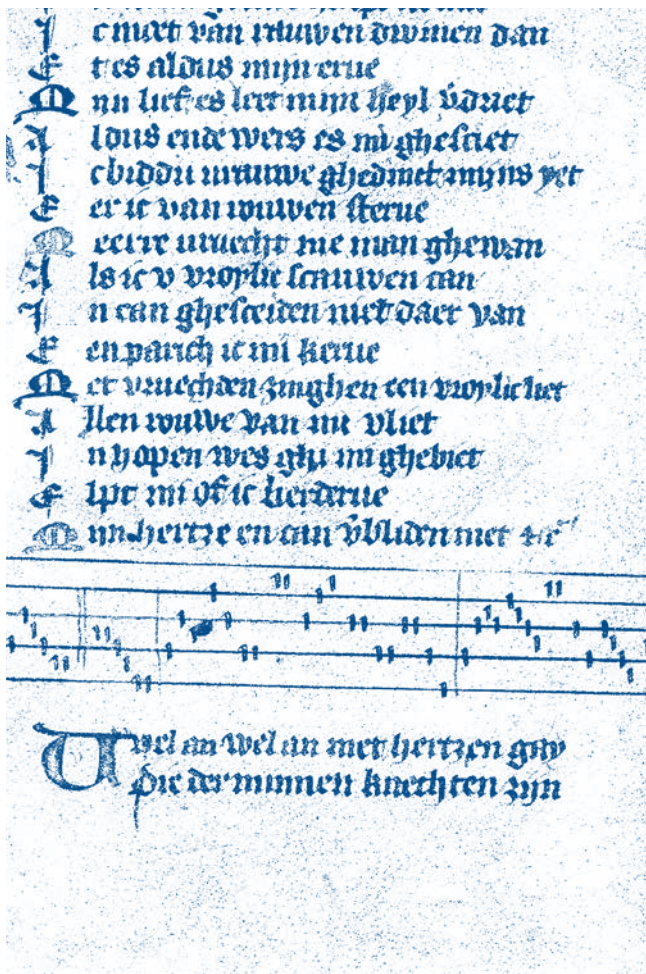 I c muet van rauwen dwinen dan
E t es aldus mijn erue
M yn lief es leet mijn heyl v̄driet
A ldus ende wers es mi ghesciet
I c biddu urauwe ghedinct mijns yet
E er ic van rouwen sterue
M eerre uruecht nie man ghewan
A ls ic v vroylic scauwen can
I n can ghesceiden niet daer van
E en parich ic mi kerue
M et vruechden zinghen een vroylic liet
A llen rouwe van mi vliet
I n hopen wes ghi mi ghebiet
E lpt mi of ic bederue
M yn hertze en can v̄bliden niet
W el an wel an met hertzen gay
Die der minnen knechten zijn